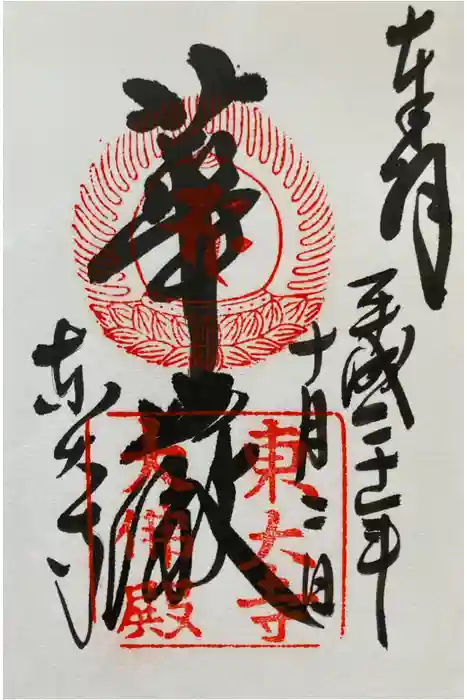 奉拝
平成二十一年
十月二日
華厳
東大寺
東大寺
大佛殿